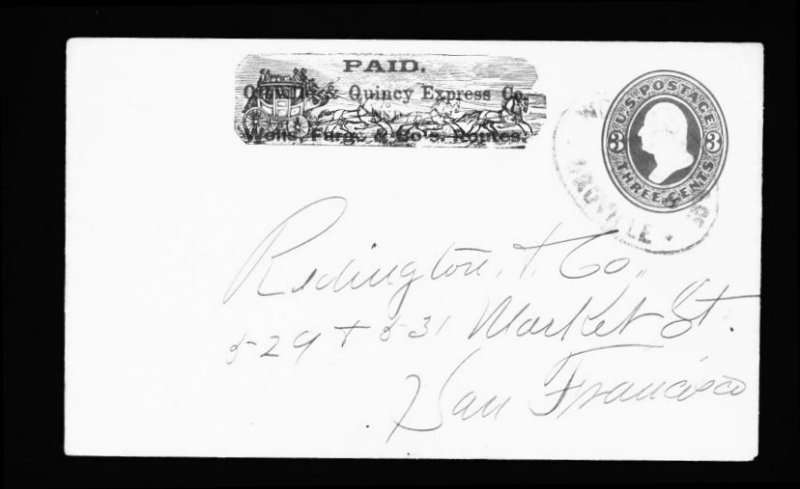 PAID.
Oroville & Quincy Express Co.
Wells, Fargo & Co's. Routes.
U.S. POSTAGE
3 3
THREE CENTS
OROVILLE
Redington & Co.
529 + 531 Market St.
San Francisco